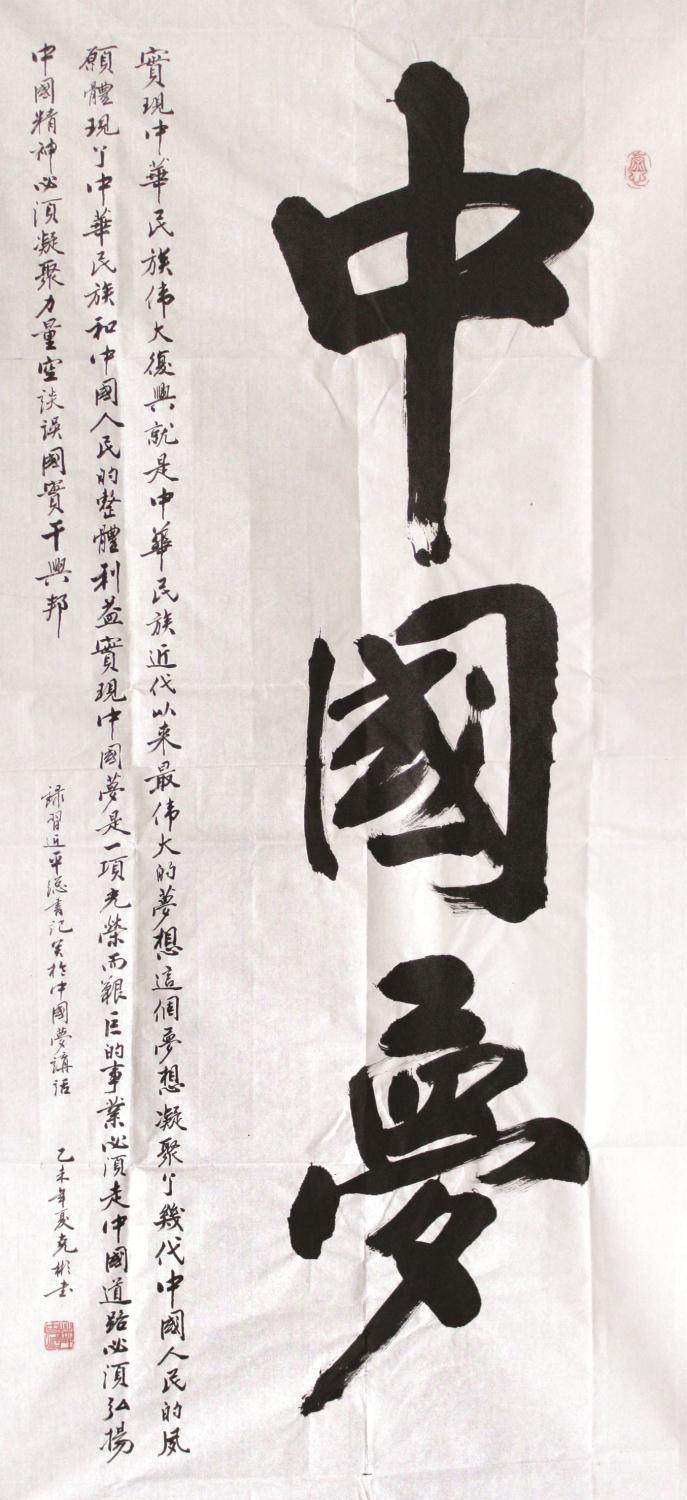 中國夢
實現中華民族偉大復興就是中華民族近代以来最偉大的夢想這個夢想凝聚了幾代中國人民的夙
願體現了中華民族和中國人民的整體利益實現中國夢是一項光榮而艱巨的事業必須走中國道路必須弘揚
中國精神必須凝聚力量空談誤國實干興邦
録習近平總書記关於中國夢講話
乙未年夏克彬书